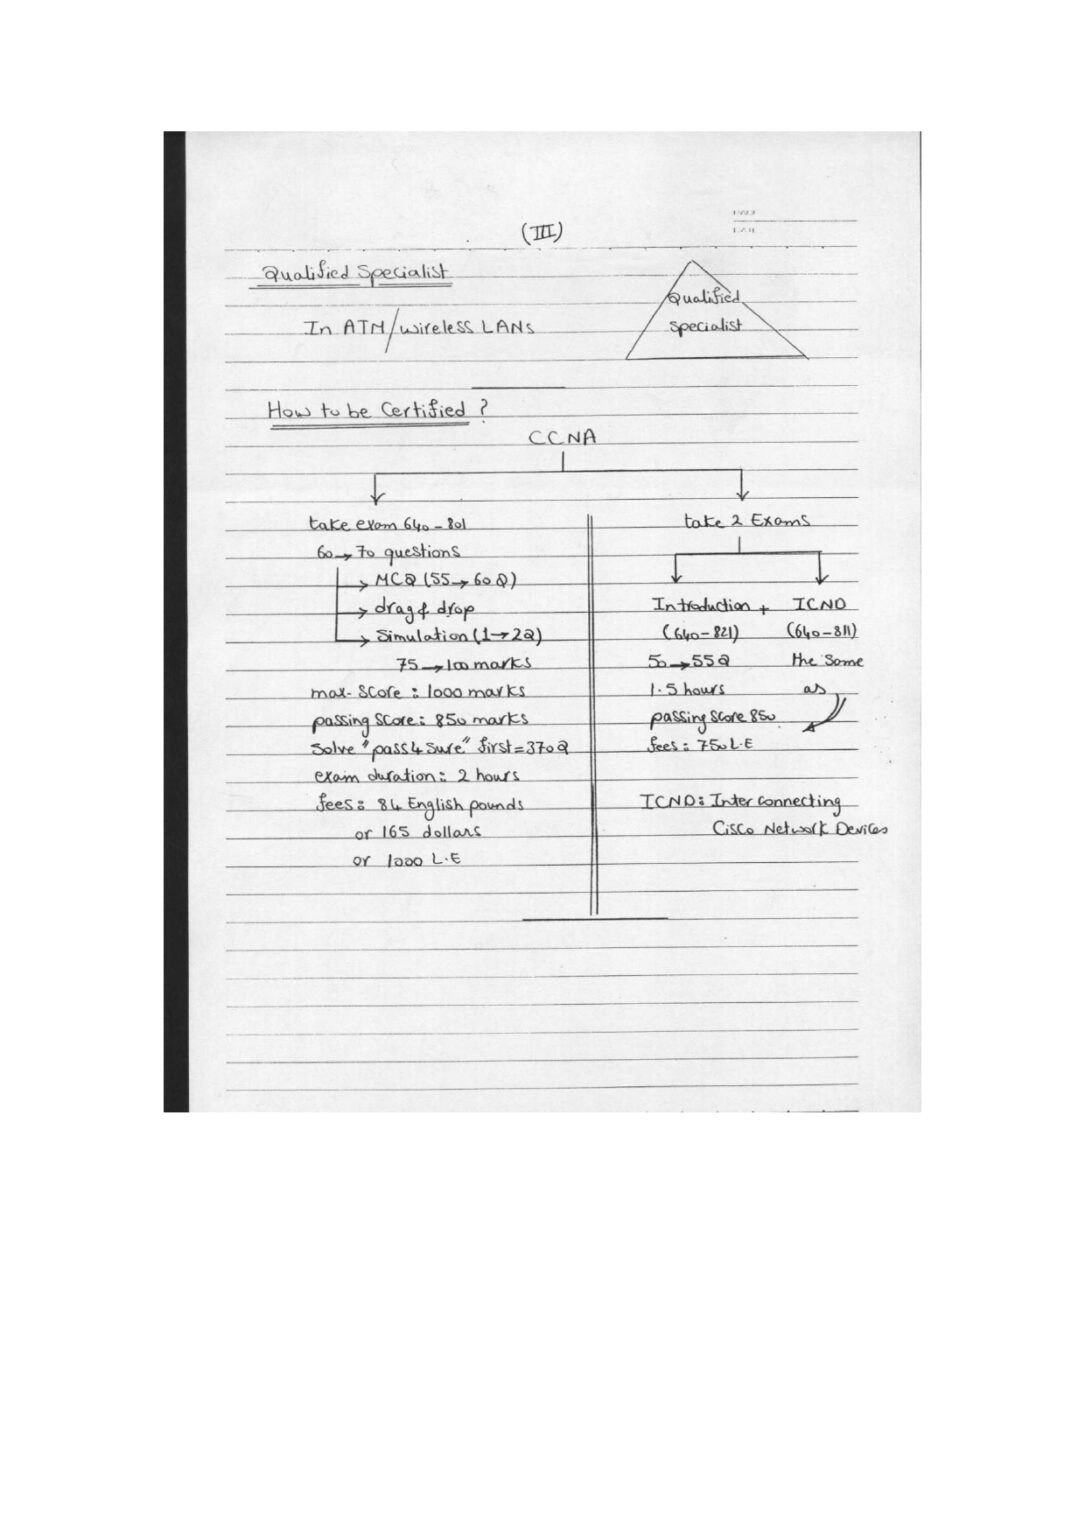 PAGE
DATE
(III)
Qualified Specialist
In ATM/wireless LANs
Qualified
Specialist
How to be Certified ?
CCNA
take exam 640-801
60→70 questions
→ MCQ (55→60Q)
→ drag & drop
→ Simulation (1→2Q)
75→100 marks
max. Score : 1000 marks
passing Score: 850 marks
Solve "pass4sure" first=370Q
exam duration: 2 hours
fees: 84 English pounds
or 165 dollars
or 1000 L.E
take 2 Exams
Introduction + ICND
(640-821) (640-811)
50→55Q the same
1.5 hours as
passing score 850
fees: 750 L.E
ICND: Inter connecting
Cisco Network Devices